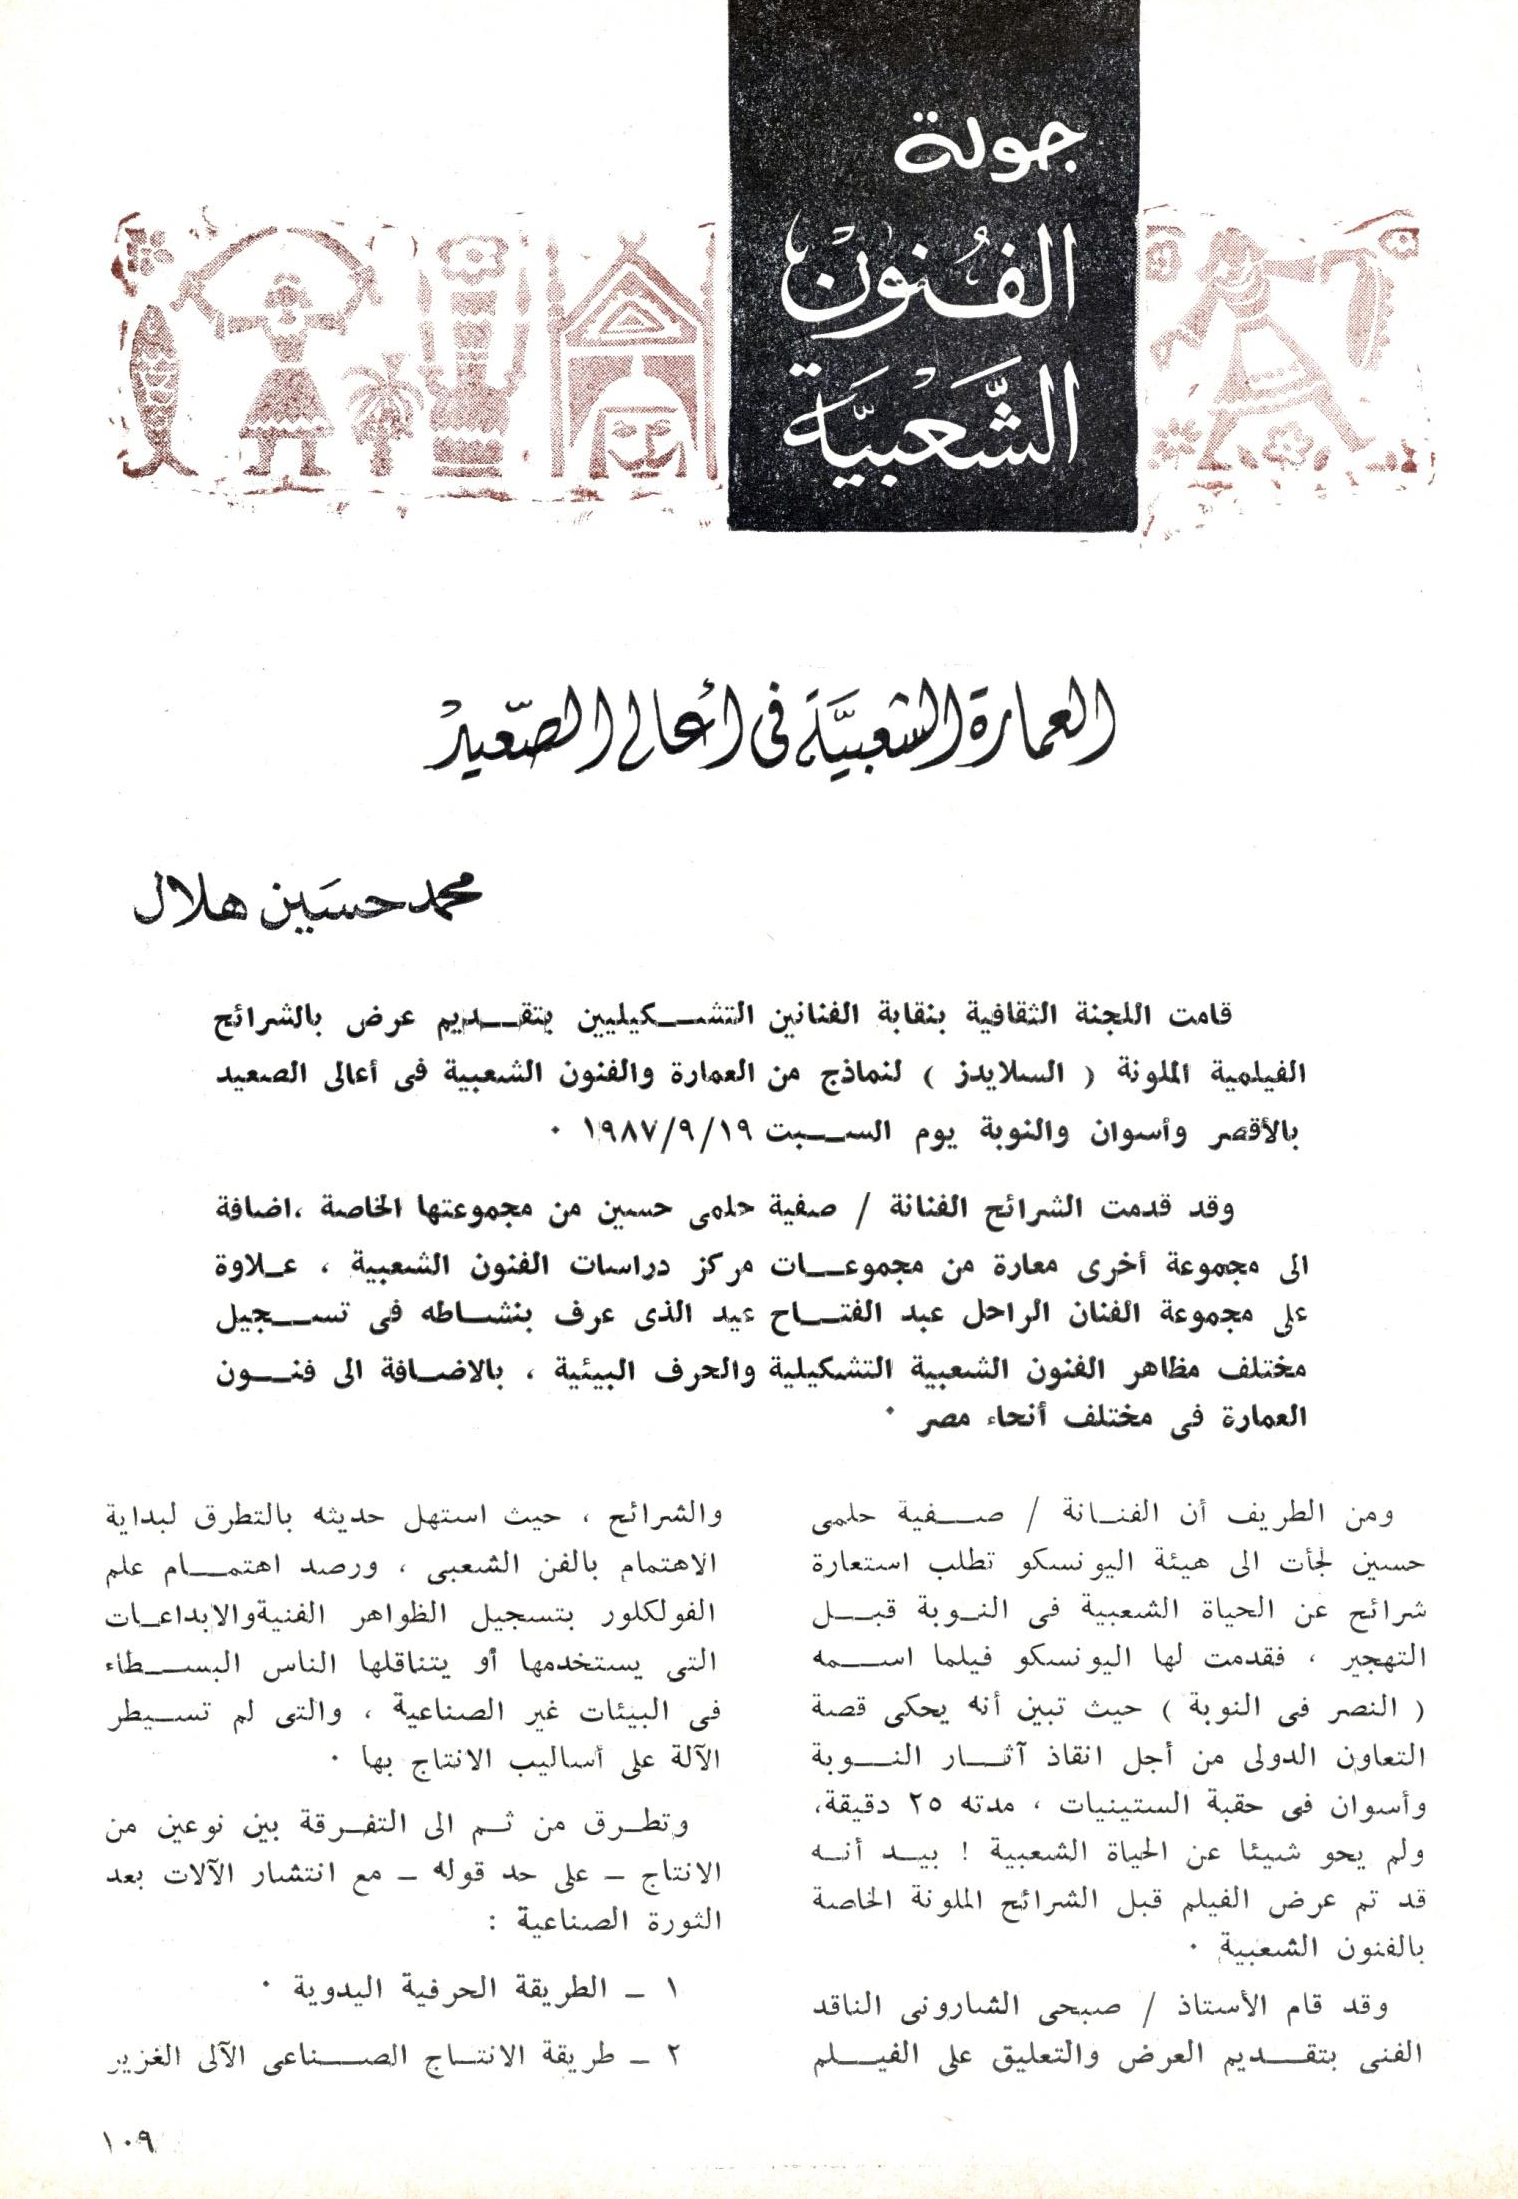 جولة
الفُنونْ
الشَّعْبيَّة
العمارة الشعبيَّة فى أعالى الصّعيدْ
محمد حسَين هلال
قامت اللجنة الثقافية بنقابة الفنانين التشكيليين بتقديم عرض بالشرائح
الفيلمية الملونة ( السلايدز ) لنماذج من العمارة والفنون الشعبية فى أعالى الصعيد
بالأقصر وأسوان والنوبة يوم السبت ١٩٨٧/٩/١٩ ٠
وقد قدمت الشرائح الفنانة / صفية حلمى حسين من مجموعتها الخاصة ،اضافة
الى مجموعة أخرى معارة من مجموعات مركز دراسات الفنون الشعبية ، علاوة
على مجموعة الفنان الراحل عبد الفتاح عيد الذى عرف بنشاطه فى تسجيل
مختلف مظاهر الفنون الشعبية التشكيلية والحرف البيئية ، بالاضافة الى فنون
العمارة فى مختلف أنحاء مصر ٠
ومن الطريف أن الفنانة / صفية حلمى
حسين لجأت الى هيئة اليونسكو تطلب استعارة
شرائح عن الحياة الشعبية فى النوبة قبل
التهجير ، فقدمت لها اليونسكو فيلما اسمه
( النصر فى النوبة ) حيث تبين أنه يحكى قصة
التعاون الدولى من أجل انقاذ آثار النوبة
وأسوان فى حقبة الستينيات ، مدته ٢٥ دقيقة،
ولم يحو شيئا عن الحياة الشعبية ! بيد أنه
قد تم عرض الفيلم قبل الشرائح الملونة الخاصة
بالفنون الشعبية ٠
وقد قام الأستاذ / صبحى الشارونى الناقد
الفنى بتقديم العرض والتعليق على الفيلم
والشرائح ، حيث استهل حديثه بالتطرق لبداية
الاهتمام بالفن الشعبى ، ورصد اهتمام علم
الفولكلور بتسجيل الظواهر الفنيةوالابداعات
التى يستخدمها أو يتناقلها الناس البسطاء
فى البيئات غير الصناعية ، والتى لم تسيطر
الآلة على أساليب الانتاج بها ٠
وتطرق من ثم الى التفرقة بين نوعين من
الانتاج – على حد قوله – مع انتشار الآلات بعد
الثورة الصناعية :
١ – الطريقة الحرفية اليدوية ٠
٢ – طريقة الانتاج الصناعى الآلى الغزير
١٠٩